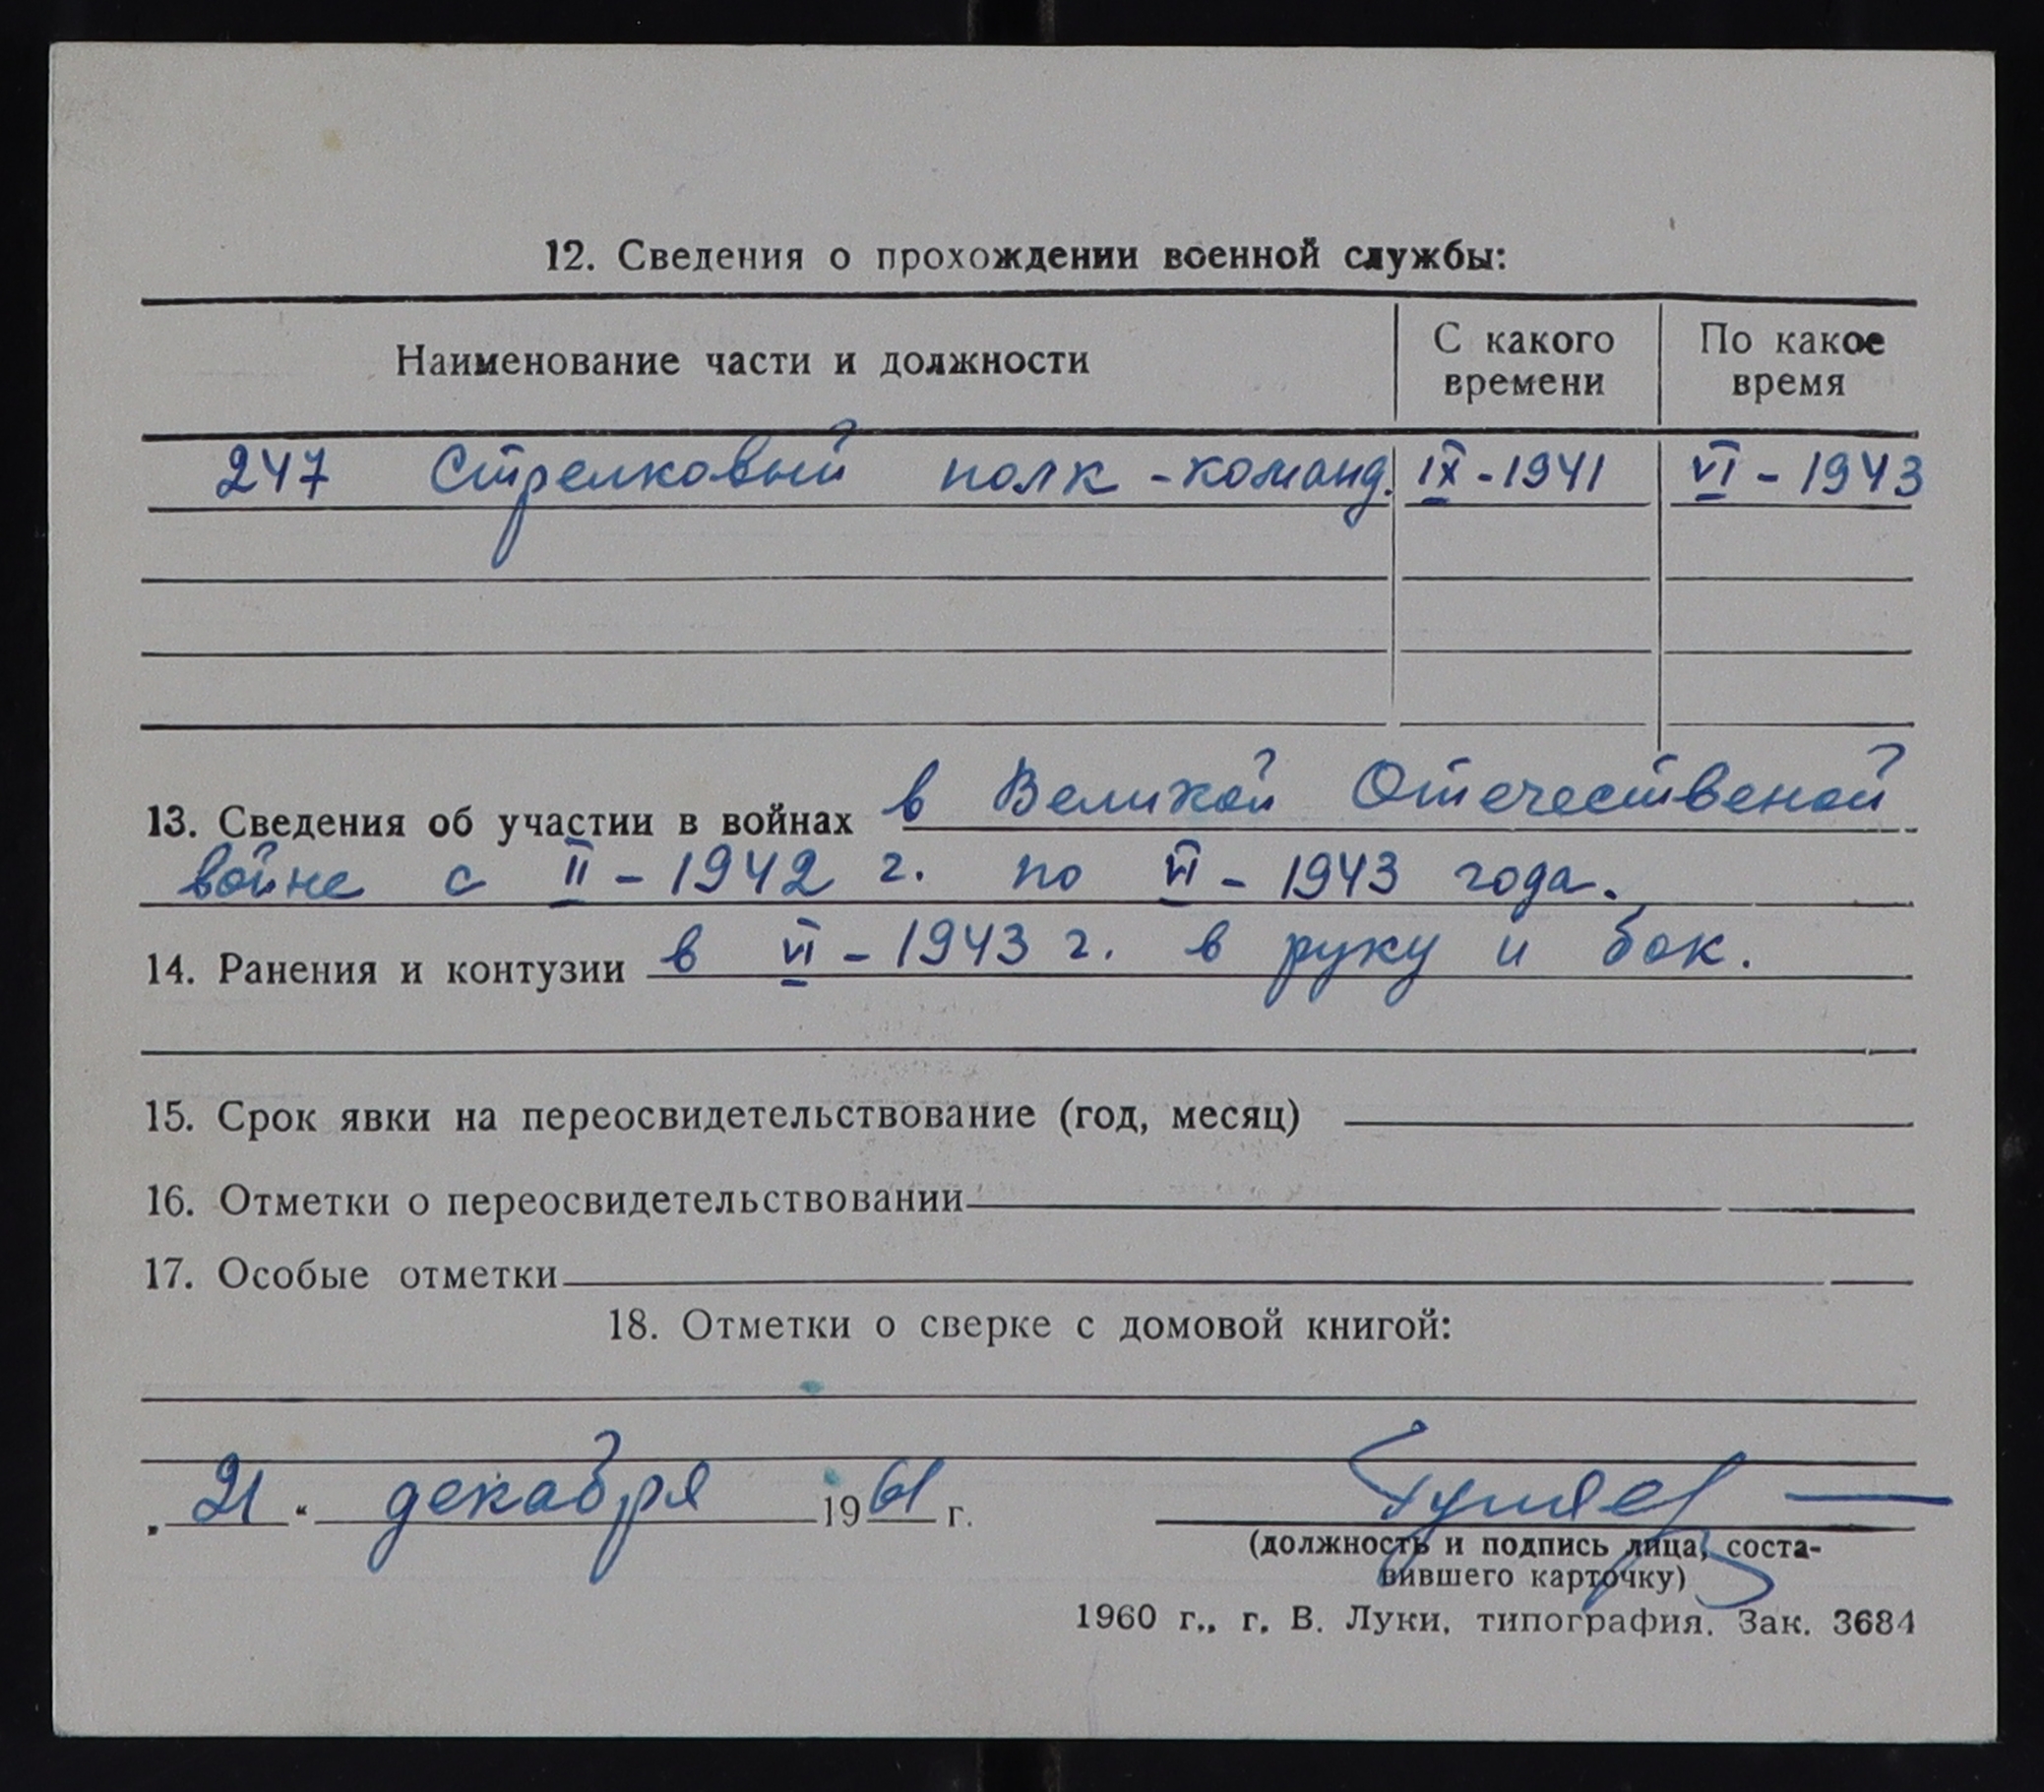 12. Сведения о прохождении военной службы:
Наименование части и должности
С какого времени
По какое время
247 Стрелковый полк - команд. IX - 1941 VI - 1943
13. Сведения об участии в войнах в Великой Отечественой
войне с II - 1942 г. по VI - 1943 года.
14. Ранения и контузии в VI - 1943 г. в руку и бок.
15. Срок явки на переосвидетельствование (год, месяц)
16. Отметки о переосвидетельствовании
17. Особые отметки
18. Отметки о сверке с домовой книгой:
„ 21 “ декабря 1961 г.
(должность и подпись лица, соста-
вившего карточку)
1960 г., г. В. Луки, типография. Зак. 3684